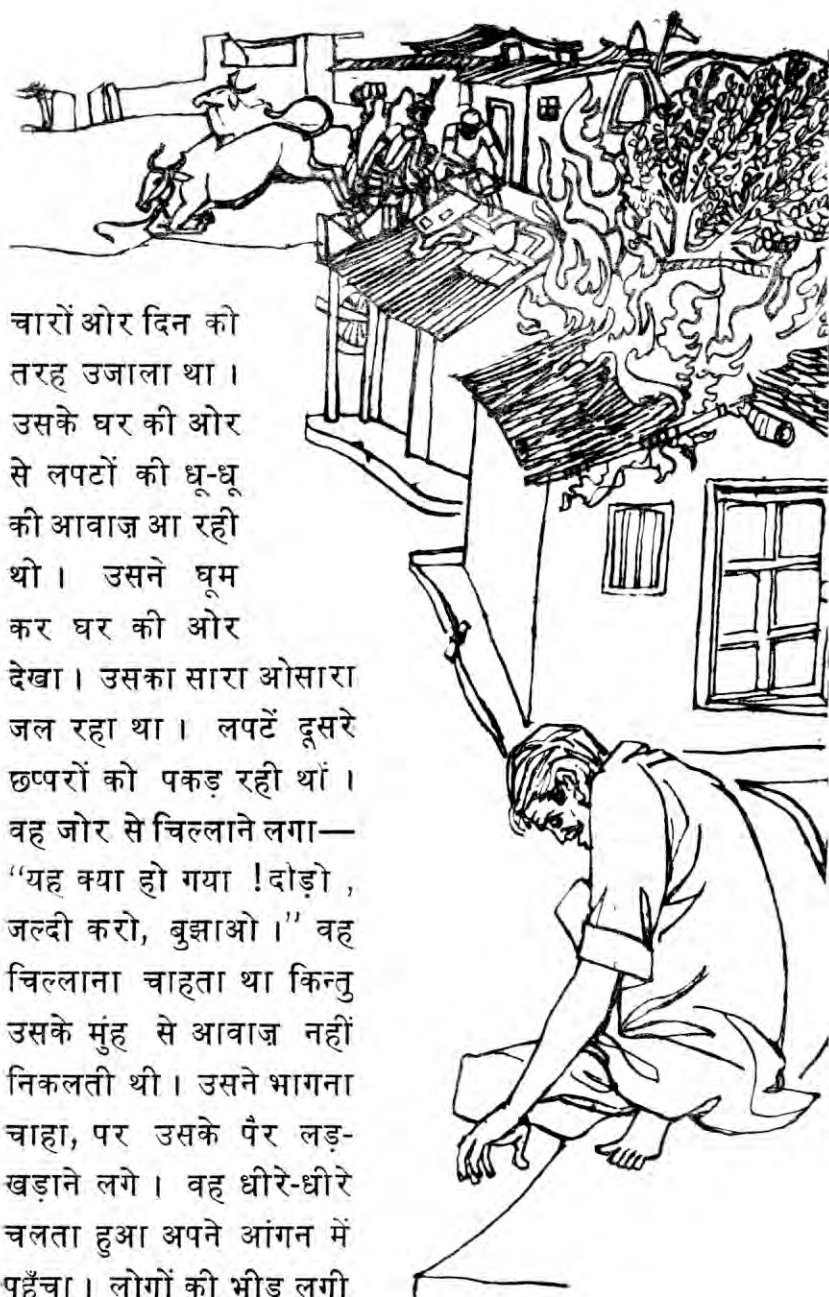 चारों ओर दिन को
तरह उजाला था ।
उसके घर की ओर
से लपटों की धू-धू
की आवाज़ आ रही
थो । उसने घूम
कर घर की ओर
देखा । उसका सारा ओसारा
जल रहा था । लपटें दूसरे
छप्परों को पकड़ रही थीं ।
वह जोर से चिल्लाने लगा—
“यह क्या हो गया ! दोड़ो ,
जल्दी करो, बुझाओ ।” वह
चिल्लाना चाहता था किन्तु
उसके मुंह से आवाज़ नहीं
निकलती थी । उसने भागना
चाहा, पर उसके पैर लड़-
खड़ाने लगे । वह धीरे-धीरे
चलता हुआ अपने आंगन में
पहुँचा । लोगों की भीड़ लगी